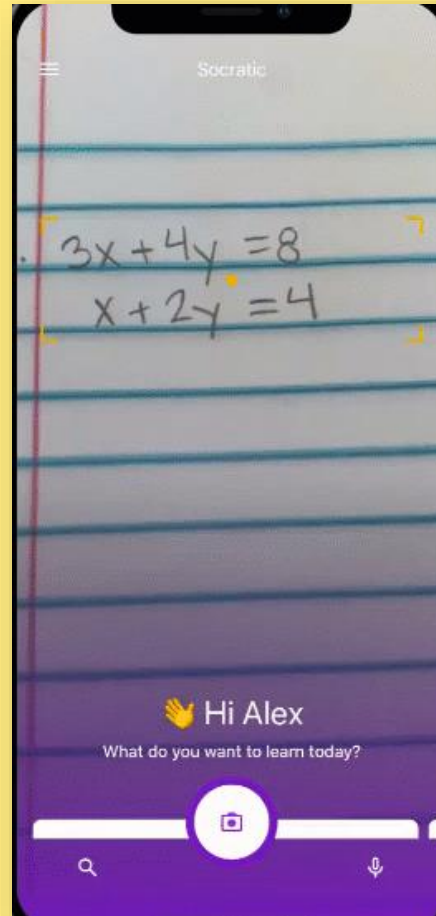 Socratic
3x + 4y = 8
x + 2y = 4
👋 Hi Alex
What do you want to learn today?